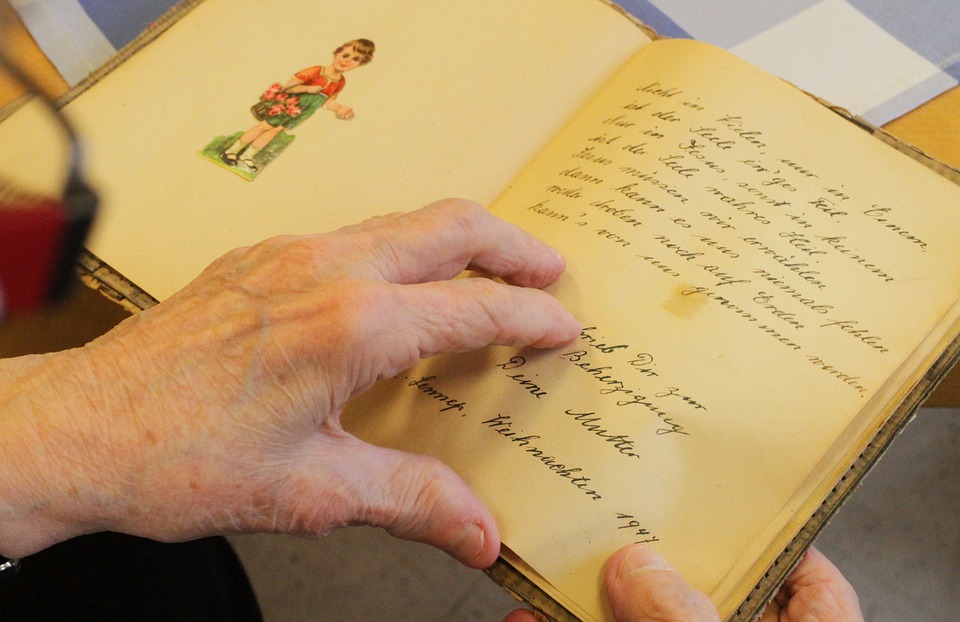 Nicht in Vielen, nur in Einem
ist der Seele ew'ges Teil.
Nur in Jesus, sonst in keinem
ist der Seele wahres Heil.
Jesus müssen wir erwählen
dann kann es uns niemals fehlen
weder droben noch auf Erden
kann's von uns genommen werden.
rieb Dir zur
Beherzigung
Deine Mutter
Lennep, Weihnachten 1947